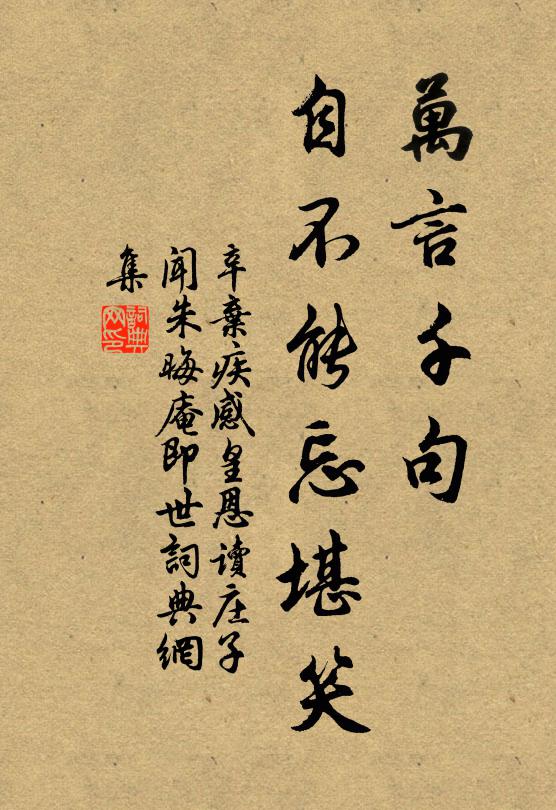 萬言千句
自不能忘堪笑
辛棄疾感皇恩讀庄子
聞朱晦庵即世詞典網
集
詞典網印